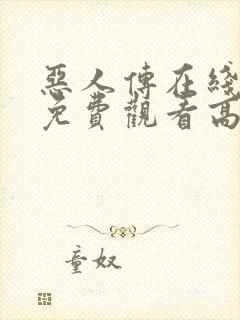 惡人傳在綫
免費觀看高
童奴